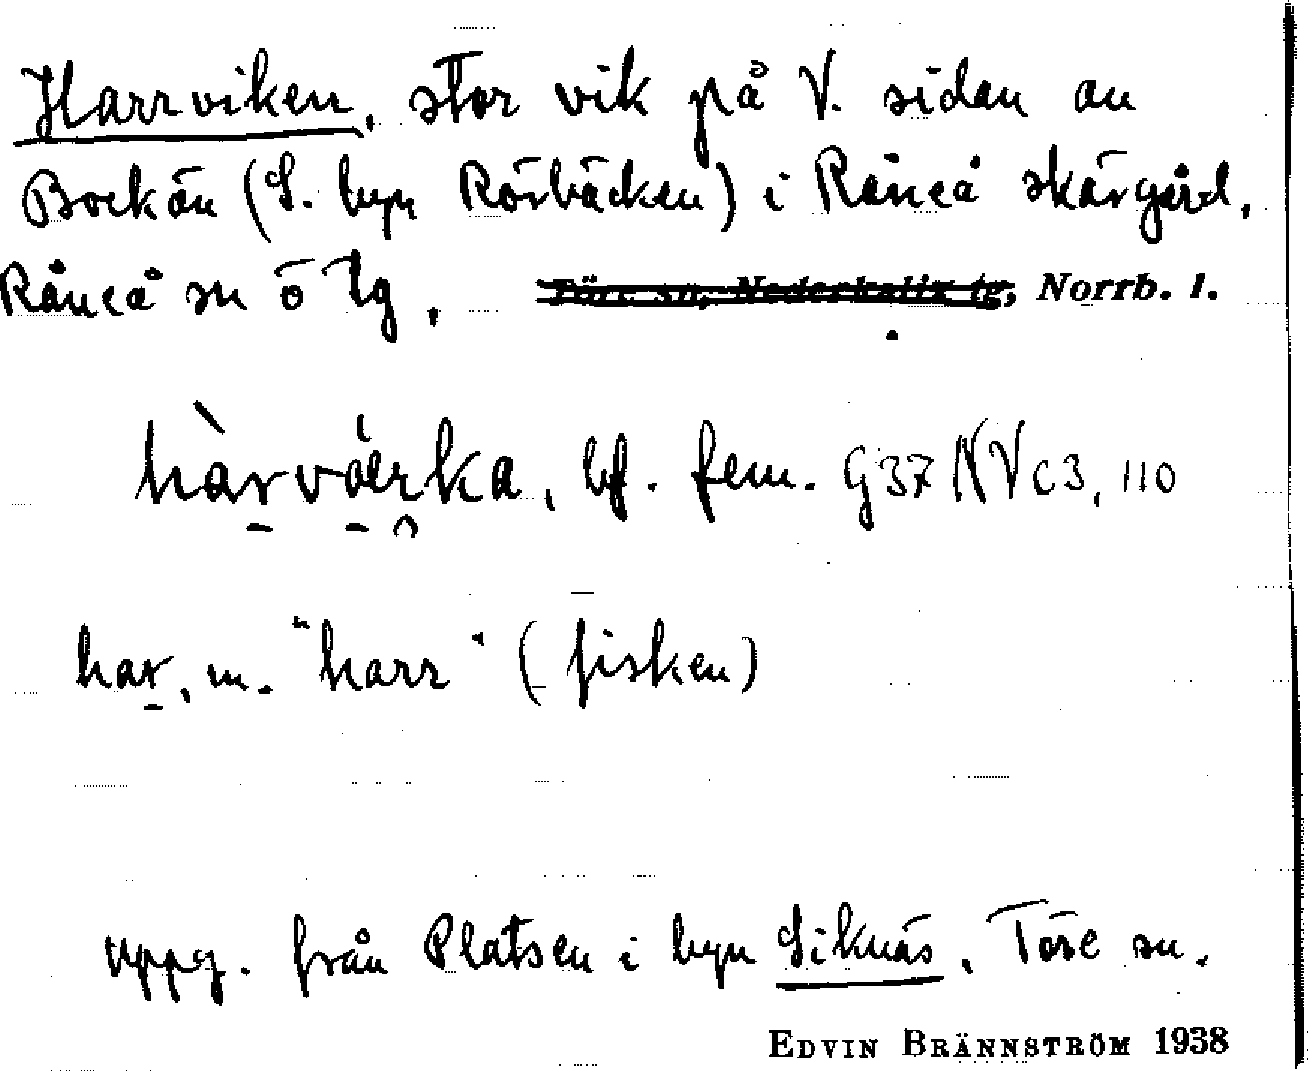 Harrviken, stor vik på V. sidan av
Bockön (S. byn Rörbäcken) i Råneå skärgård,
Råneå sn ö tg, Töre sn, Nederkalix tg, Norrb. l.
hàrvá̀erka, bf. fem. G37 NV c3, 110
har, m. "harr" (fisken)
uppg. från Platsen i byn Siknäs, Töre sn.
EDVIN BRÄNNSTRÖM 1938